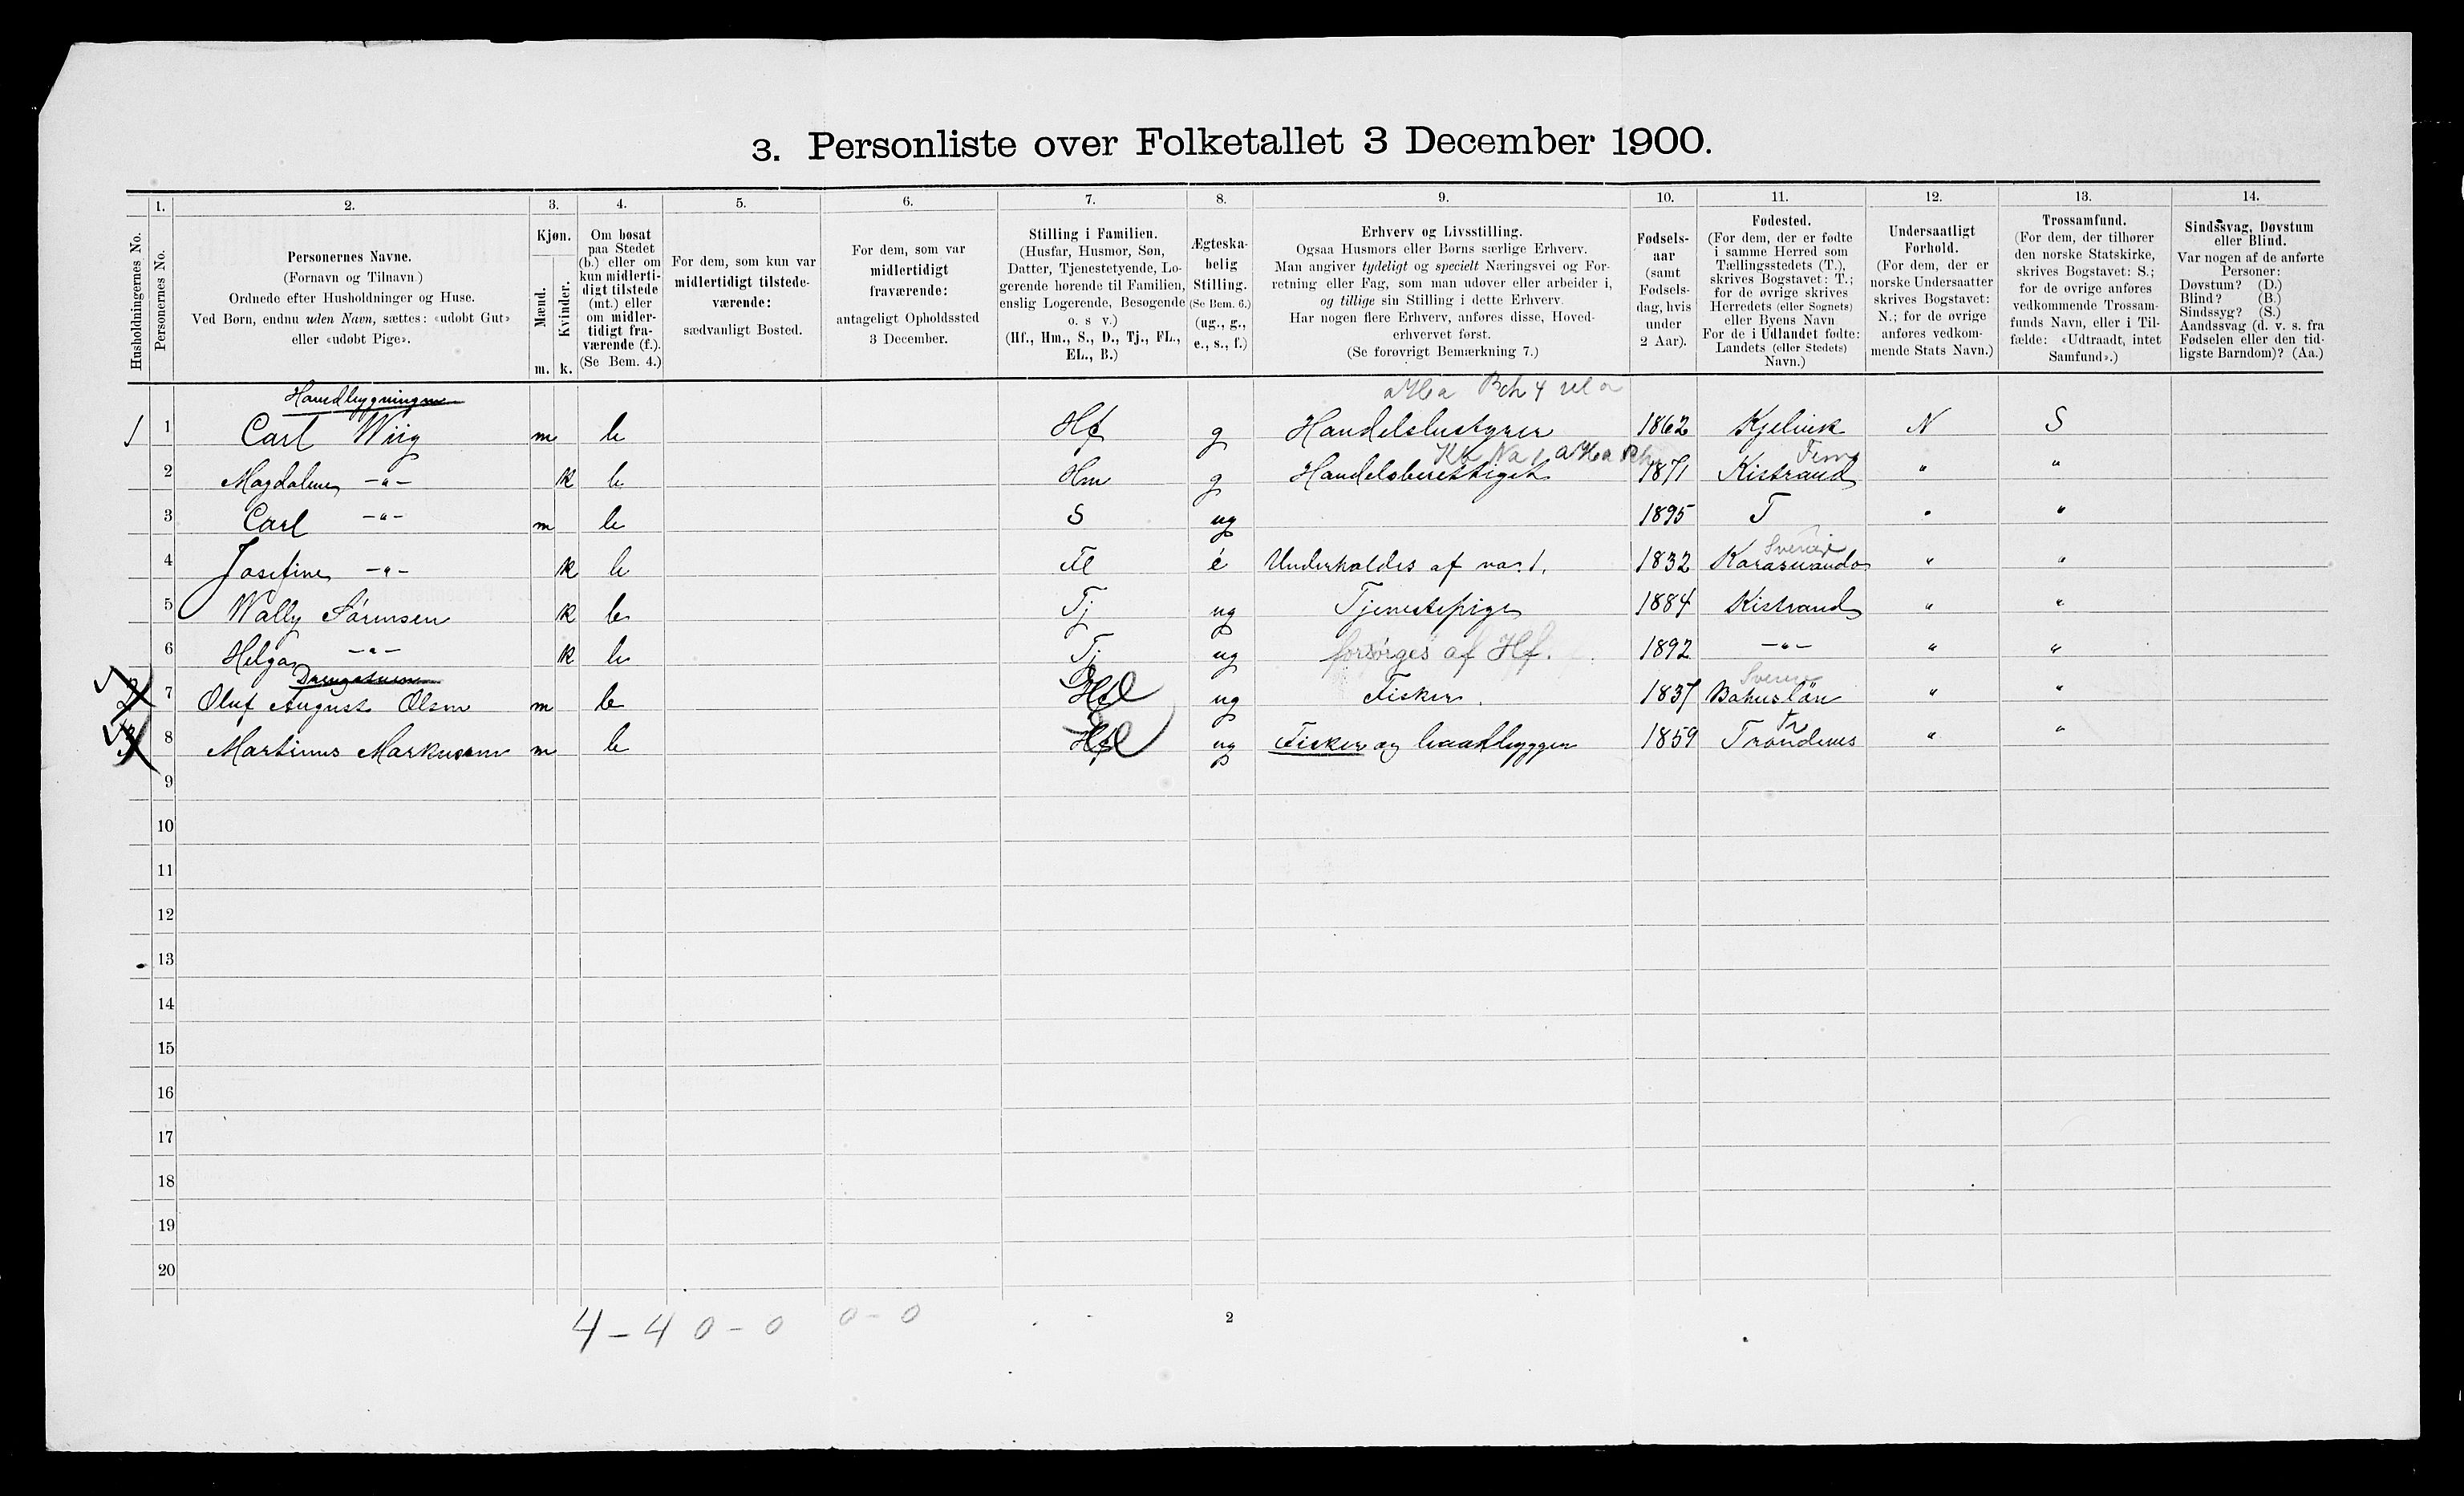 3. Personliste over Folketallet 3 December 1900.
1. 2. 3. 4. 5. 6. 7. 8. 9. 10. 11. 12. 13. 14.
Husholdningernes No.
Personernes No.
Personernes Navne.
(Fornavn og Tilnavn.)
Ordnede efter Husholdninger og Huse.
Ved Børn, endnu uden Navn, sættes: «udøbt Gut»
eller «udøbt Pige».
Kjøn.
Mænd.
Kvinder.
m. k.
Om bosat
paa Stedet
(b.) eller om
kun midlerti-
digt tilstede
(mt.) eller
om midler-
tidigt fra-
værende (f.).
(Se Bem. 4.)
For dem, som kun var
midlertidigt tilstede-
værende:
sædvanligt Bosted.
For dem, som var
midlertidigt
fraværende:
antageligt Opholdssted
3 December.
Stilling i Familien.
(Husfar, Husmor, Søn,
Datter, Tjenestetyende, Lo-
gerende hørende til Familien,
enslig Logerende, Besøgende
o. s v.)
(Hf., Hm., S., D., Tj., FL.,
EL., B.)
Ægteska-
belig
Stilling.
(Se Bem. 6.)
(ug., g.,
e., s., f.)
Erhverv og Livsstilling.
Ogsaa Husmors eller Børns særlige Erhverv.
Man angiver tydeligt og specielt Næringsvei og For-
retning eller Fag, som man udøver eller arbeider i,
og tillige sin Stilling i dette Erhverv.
Har nogen flere Erhverv, anføres disse, Hoved-
erhvervet først.
(Se forøvrigt Bemærkning 7.)
Fødsels-
aar
(samt
Fødsels-
dag, hvis
under
2 Aar).
Fødested.
(For dem, der er fødte
i samme Herred som
Tællingsstedets (T.),
skrives Bogstavet: T.;
for de øvrige skrives
Herredets (eller Sognets)
eller Byens Navn
For de i Udlandet fødte:
Landets (eller Stedets)
Navn.)
Undersaatligt
Forhold.
(For dem, der er
norske Undersaatter
skrives Bogstavet:
N.; for de øvrige
anføres vedkom-
mende Stats Navn.)
Trossamfund.
(For dem, der tilhører
den norske Statskirke,
skrives Bogstavet: S.;
for de øvrige anføres
vedkommende Trossam-
funds Navn, eller i Til-
fælde: «Udtraadt, intet
Samfund».)
Sindssvag, Døvstum
eller Blind.
Var nogen af de anførte
Personer:
Døvstum? (D.)
Blind? (B.)
Sindssyg? (S.)
Aandssvag (d. v. s. fra
Fødselen eller den tid-
ligste Barndom)? (Aa.)
1 1 Carl Wiig m b Hf g Handelsbestyrer 1862 Kjelvik N S
2 Magdalene -"- k b Hm g Handelsberettiget 1871 Kistrand " "
3 Carl -"- m b S ug 1895 T " "
Sverige
4 Josefine -"- k b Fl e Underholdes af no. 1. 1832 Karasuando " "
5 Wally Sørensen k b Tj ug Tjenestepige 1884 Kistrand " "
6 Helga -"- k b Tj ug forsørges af Hf. 1892 -"- " "
7 Oluf August Olsen m b ug Fisker. 1837 Bahuslän " "
8 Martinus Markussen m b ug Fisker og baadbygger 1859 Trondenes " "
9
10
11
12
13
14
15
16
17
18
19
20
4-4 0-0 0-0
2